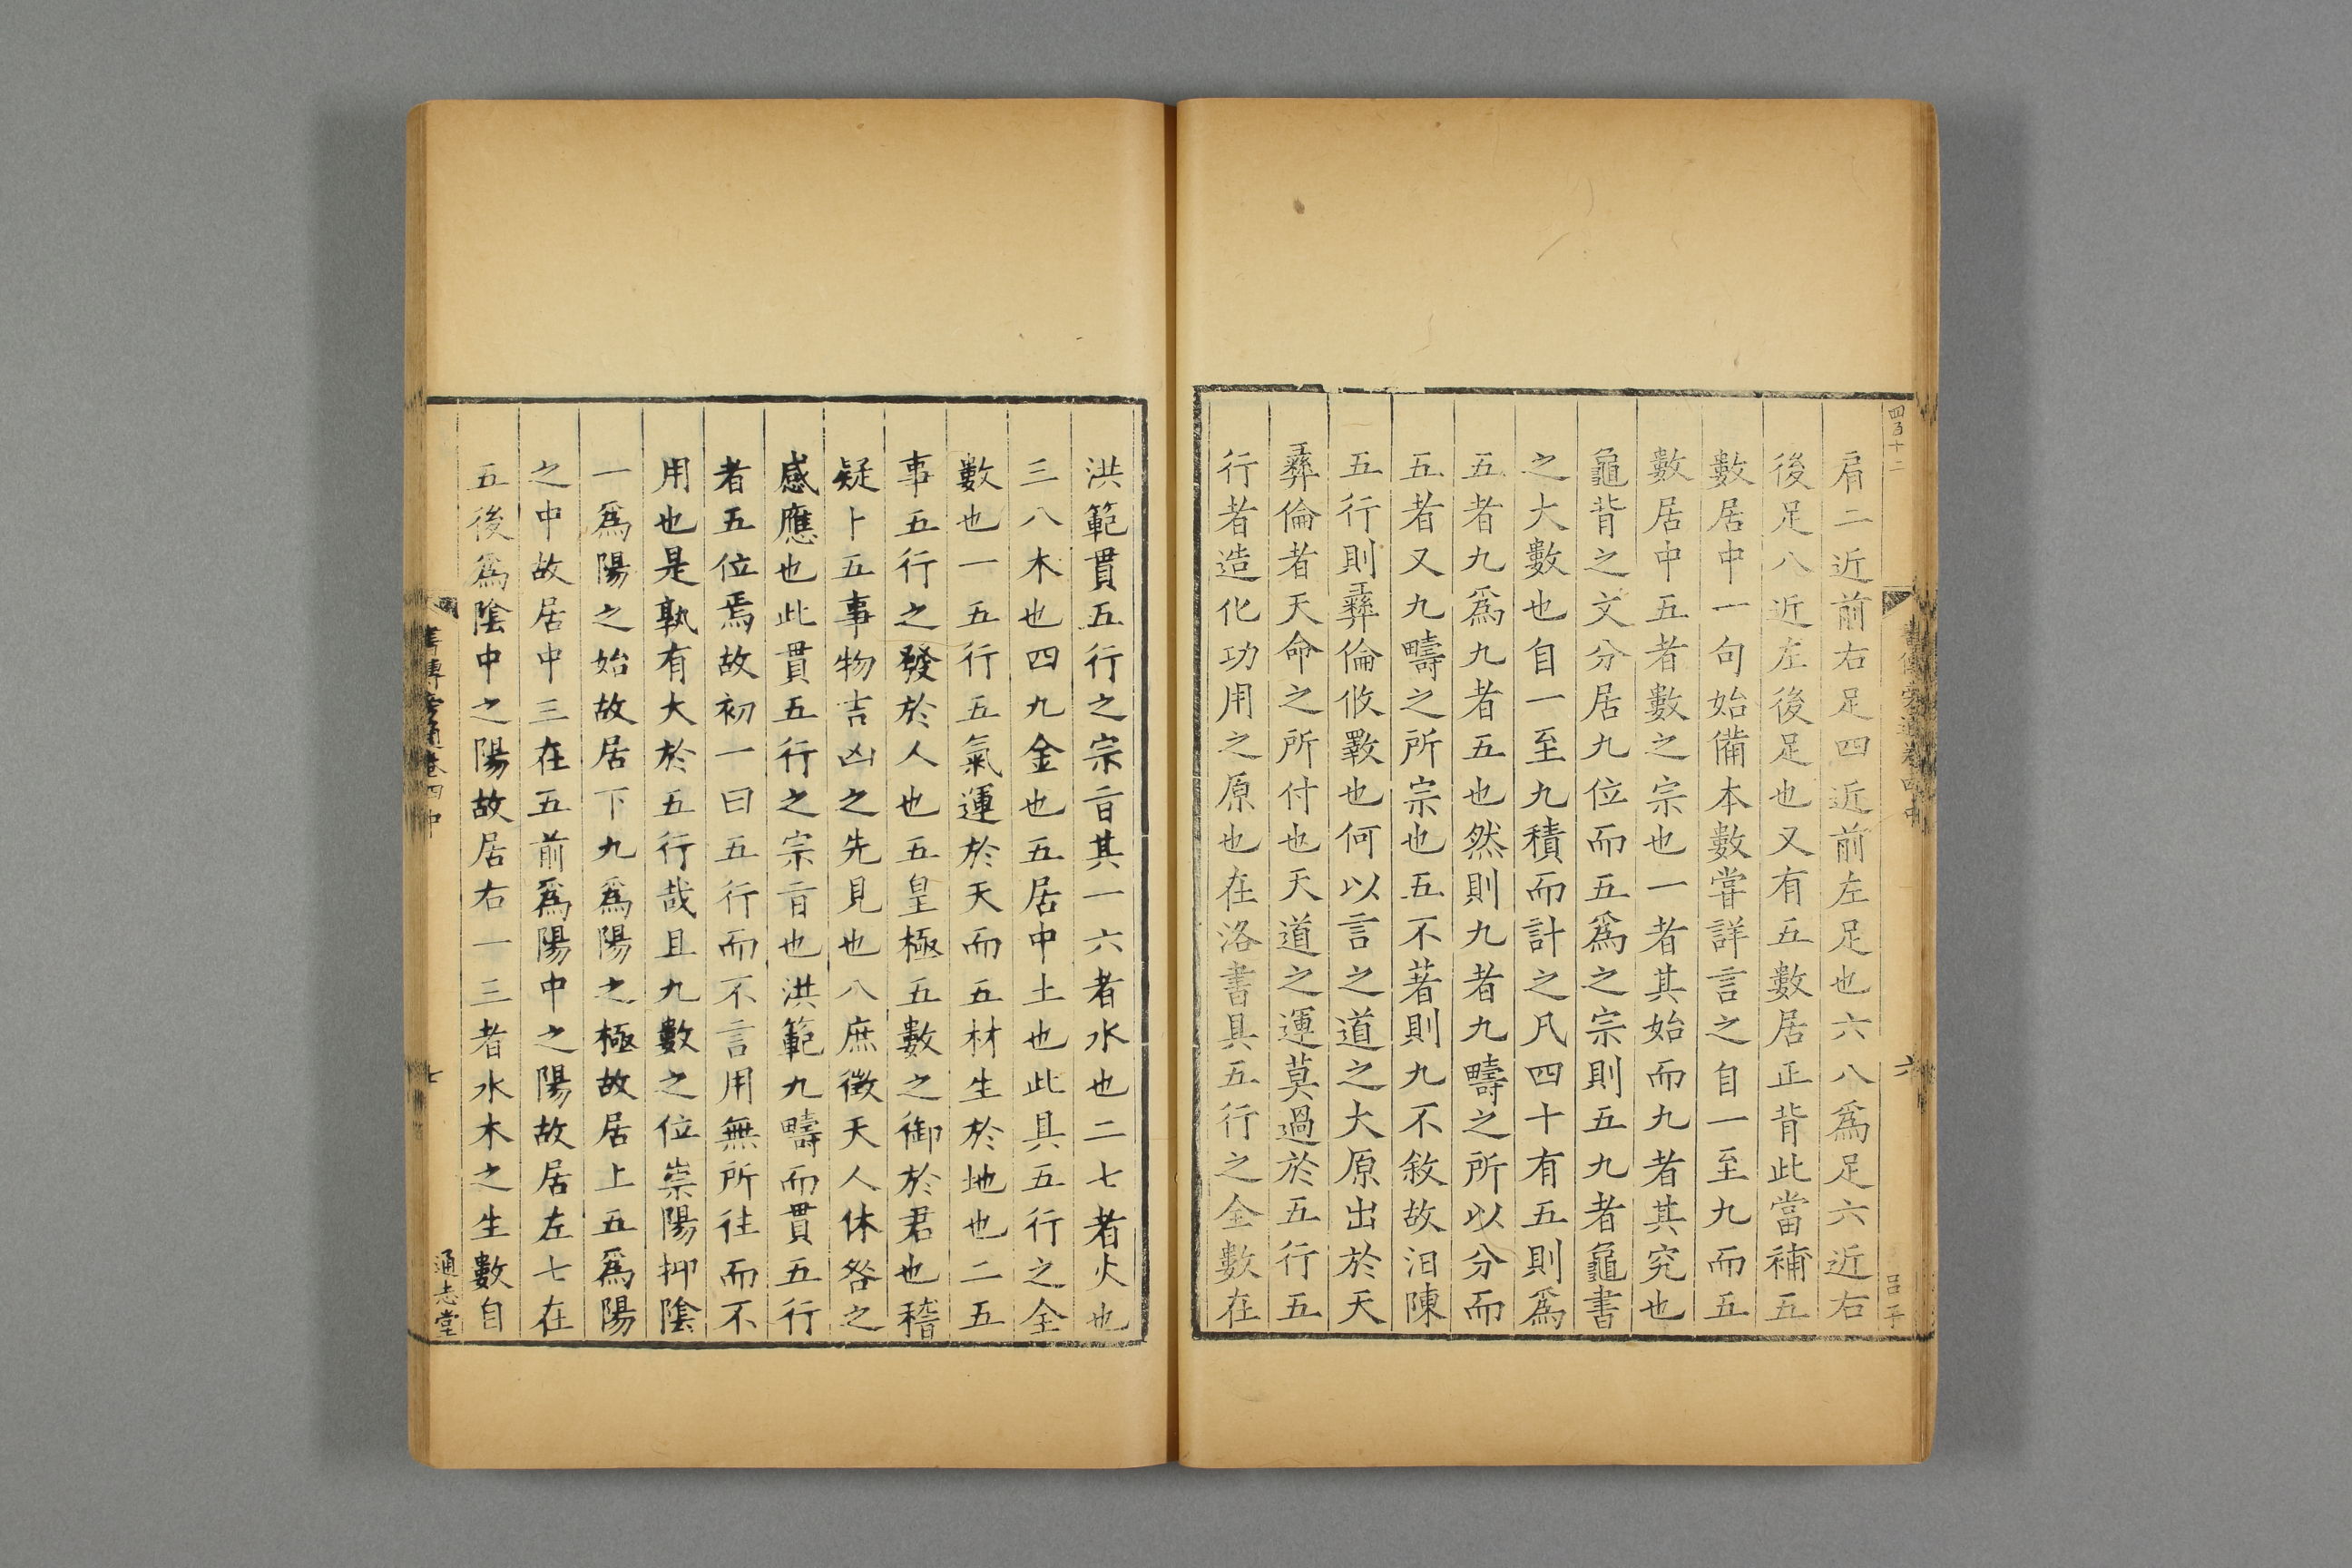 四百十二
書傳旁通卷四中
六
吕子
肩二近前右足四近前左足也六八爲足六近右
後足八近左後足也又有五數居正背此當補五
數居中一句始備本數嘗詳言之自一至九而五
數居中五者數之宗也一者其始而九者其究也
龜背之文分居九位而五爲之宗則五九者龜書
之大數也自一至九積而計之凡四十有五則爲
五者九爲九者五也然則九者九疇之所以分而
五者又九疇之所宗也五不著則九不敘故汨陳
五行則彞倫攸斁也何以言之道之大原出於天
彞倫者天命之所付也天道之運莫過於五行五
行者造化功用之原也在洛書具五行之全數在
洪範貫五行之宗㫖其一六者水也二七者火也
三八木也四九金也五居中土也此具五行之全
數也一五行五氣運於天而五材生於地也二五
事五行之發於人也五皇極五數之御於君也稽
疑卜五事物吉凶之先見也八庶徵天人休咎之
感應也此貫五行之宗㫖也洪範九疇而貫五行
者五位焉故初一曰五行而不言用無所往而不
用也是孰有大於五行哉且九數之位崇陽抑陰
一爲陽之始故居下九爲陽之極故居上五爲陽
之中故居中三在五前爲陽中之陽故居左七在
五後爲陰中之陽故居右一三者水木之生數自
書傳旁通卷四中
七
通志堂